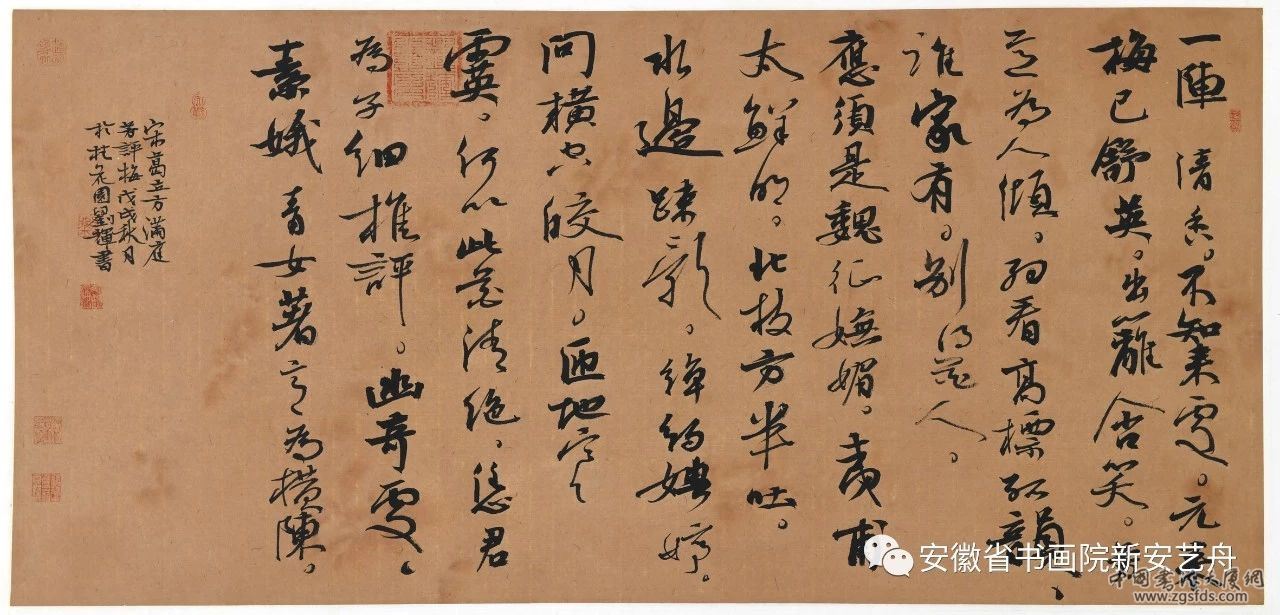 一陣清香。不知來處。元來
梅已舒英。出籬含笑。芳
意為人傾。細看高標孤韻、
誰家有。别得花人。
應須是魏征嫵媚。夷甫
太鮮明。北枝方半吐。
水邊踈影。綽約娉婷。
問橫空皎月。匝地寒
霙。何以此花清絶。憑君
為子細推評。幽奇處、
素娥青女著意為橫陳。
宋葛立方滿庭
芳評梅戊戌秋月
於桃花園劉輝書
安徽省书画院新安艺舟
中國書法大展網
www.zgsfds.com